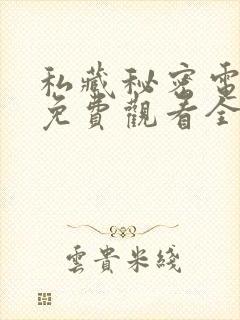 私藏秘密電
免費觀看全
雲貴米綫